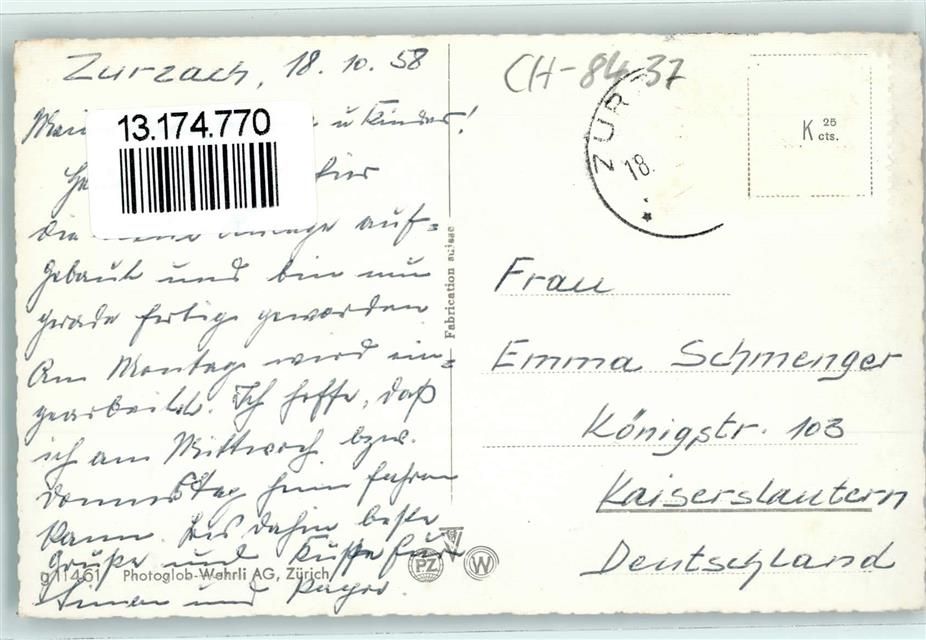 Zurzach, 18. 10. 58
u Kinder!
13.174.770
hier
die Anlage auf-
gebaut und bin nun
gerade fertig geworden
Am Montag wird ein-
gearbeitet. Ich hoffe, daß
ich am Mittwoch bzw.
Donnerstag heim fahren
kann. Bis dahin beste
Grüße und Küsse für
und
g 11461 Photoglob-Wehrli AG, Zürich
PZ W
Fabrication suisse
CH-8437
ZUR
18.
K 25 cts.
Frau
Emma Schmenger
Königstr. 103
Kaiserslautern
Deutschland